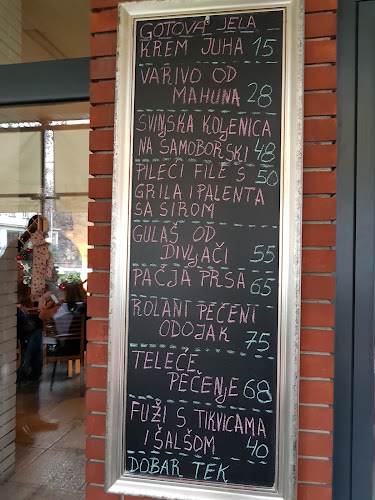 GOTOVA JELA
KREM JUHA 15
VARIVO OD
MAHUNA 28
SVINJSKA KOLJENICA
NA SAMOBORSKI 48
PILEĆI FILE S 50
GRILA I PALENTA
SA SIROM
GULAŠ OD
DIVLJAČI 55
PAČJA PRSA 65
ROLANI PEČENI
ODOJAK 75
TELEĆE
PEČENJE 68
FUŽI S TIKVICAMA
I ŠALŠOM 40
DOBAR TEK